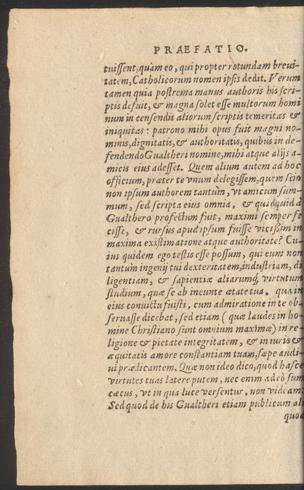 PRAEFATIO.
tuissent, quàm eo, qui propter rotundam breui-
tatem, Catholicorum nomen ipsis dedit. Verum
tamen quia postrema manus authoris his scri-
ptis defuit, & magna solet esse multorum homi
num in censendis aliorum scriptis temeritas &
iniquitas: patrono mihi opus fuit magni no-
minis, dignitatis, & authoritatis, quibus in de-
fendendo Gualtheri nomine, mihi atque alijs a-
micis eius adesset. Quem alium autem ad hoc
officium, præter te vnum delegissem, quem scio
non ipsum authorem tantùm, vt amicum sum-
mum, sed scripta eius omnia, & quidquid à
Gualthero profectum fuit, maximi semper fe
cisse, & rursus apud ipsum fuisse vicissim in
maxima existimatione atque authoritate? Cu
ius quidem ego testis esse possum, qui eum non
tantùm ingenij tui dexteritatem, industriam, di
ligentiam, & sapientiæ aliarumq́ virtutum
studium, quæ se ab ineunte ætate tua, quia in
eius conuictu fuisti, cum admiratione in te ob-
seruasse dicebat, sed etiam (quæ laudes in ho-
mine Christiano sunt omnium maximæ) in re-
ligione & pietate integritatem, & in iuris &
æquitatis amore constantiam tuam, sæpe audi-
ui prædicantem. Quæ non ideo dico, quod hasce
virtutes tuas latere putem, nec enim adeò sum
cæcus, vt in qua luce versentur, non videam.
Sed quod de his Gualtheri etiam publicum ali
quod